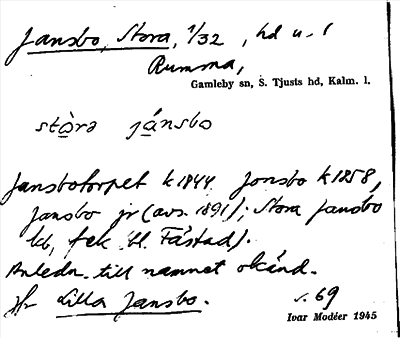 Jansbo, Stora, 1/32, hd u. f
Rumma,
Gamleby sn, S. Tjusts hd, Kalm. l.
stòrə jánsbo
Jansbotorpet k 1844 Jonsbo k 1858,
Jansbo jr (avs. 1891); Stora Jansbo
kb, fek (t. Fåstad).
Anledn. till namnet okänd.
Jfr Lilla Jansbo.
s. 69
Ivar Modéer 1945